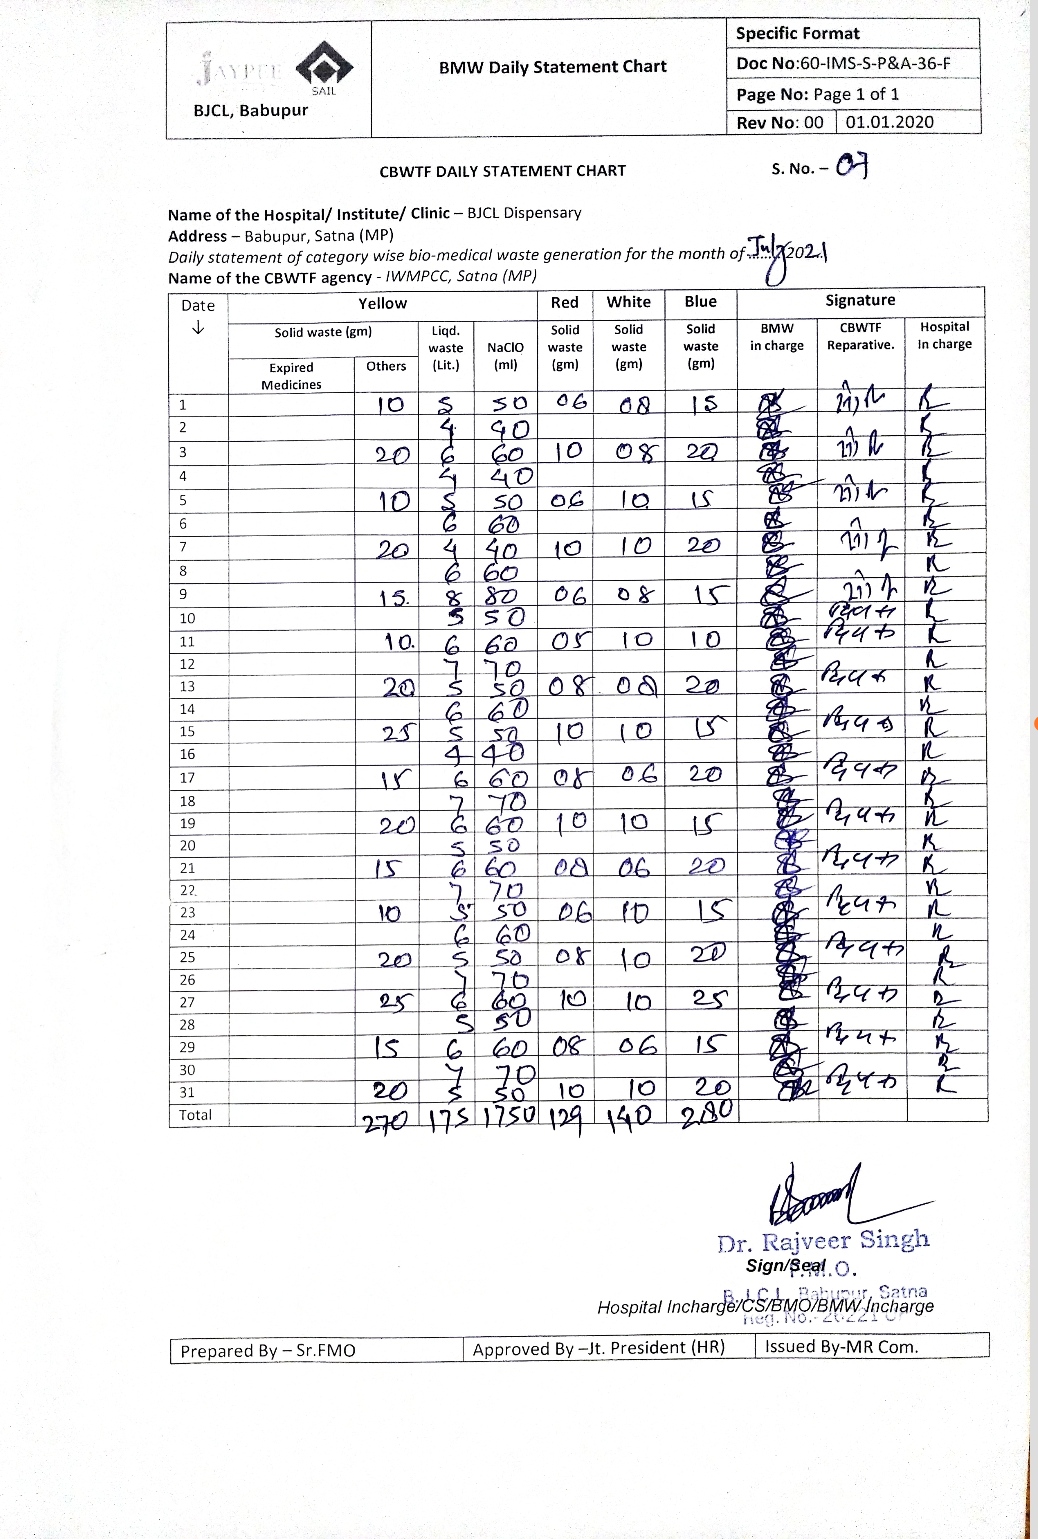 JAYPEE
SAIL
BJCL, Babupur
BMW Daily Statement Chart
Specific Format
Doc No:60-IMS-S-P&A-36-F
Page No: Page 1 of 1
Rev No: 00 01.01.2020
CBWTF DAILY STATEMENT CHART S. No. – 07
Name of the Hospital/ Institute/ Clinic – BJCL Dispensary
Address – Babupur, Satna (MP)
Daily statement of category wise bio-medical waste generation for the month of July 2021
Name of the CBWTF agency - IWMPCC, Satna (MP)
Date ↓ Yellow Red White Blue Signature
Solid waste (gm) Liqd. waste (Lit.) NaClO (ml) Solid waste (gm) Solid waste (gm) Solid waste (gm) BMW in charge CBWTF Reparative. Hospital In charge
Expired Medicines Others
1 10 5 50 06 08 15
2 4 40
3 20 6 60 10 08 20
4 4 40
5 10 5 50 06 10 15
6 6 60
7 20 4 40 10 10 20
8 6 60
9 15. 8 80 06 08 15
10 5 50
11 10. 6 60 05 10 10
12 7 70
13 20 5 50 08 08 20
14 6 60
15 25 5 50 10 10 15
16 4 40
17 15 6 60 08 06 20
18 7 70
19 20 6 60 10 10 15
20 5 50
21 15 6 60 08 06 20
22. 7 70
23 10 5 50 06 10 15
24 6 60
25 20 5 50 08 10 20
26 7 70
27 25 6 60 10 10 25
28 5 50
29 15 6 60 08 06 15
30 7 70
31 20 5 50 10 10 20
Total 270 175 1750 129 140 280
Dr. Rajveer Singh
Sign/Seal
F.M.O.
B.J.C.L. Babupur, Satna
Hospital Incharge/CS/BMO/BMW Incharge
Reg. No.
Prepared By – Sr.FMO Approved By –Jt. President (HR) Issued By-MR Com.